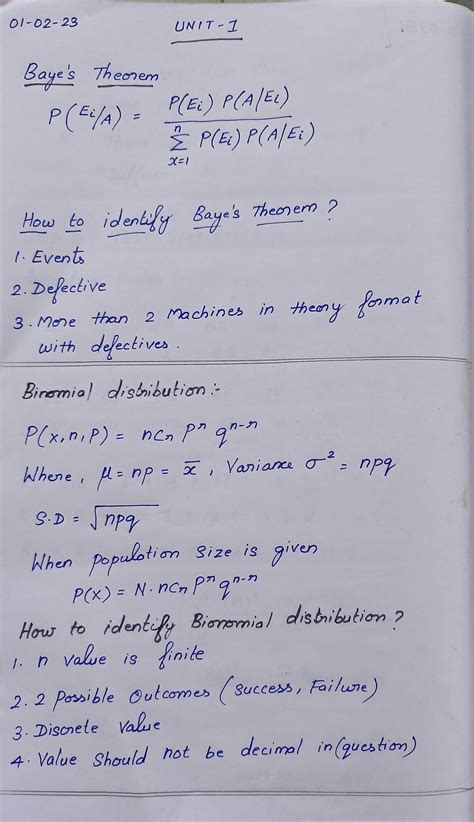 01-02-23
UNIT-1
Baye's Theorem
P(Ei/A) = P(Ei) P(A/Ei)
n
Σ P(Ei) P(A/Ei)
x=1
How to identify Baye's Theorem?
1. Events
2. Defective
3. More than 2 Machines in theory format
with defectives.
Binomial distribution:-
P(x,n,P) = nCn Pⁿ qⁿ⁻ⁿ
Where, μ = np = x̄, Variance σ² = npq
S.D = √npq
When population size is given
P(x) = N. nCn Pⁿ qⁿ⁻ⁿ
How to identify Bionomial distribution?
1. n value is finite
2. 2 Possible Outcomes (Success, Failure)
3. Discrete Value
4. Value Should not be decimal in (question)